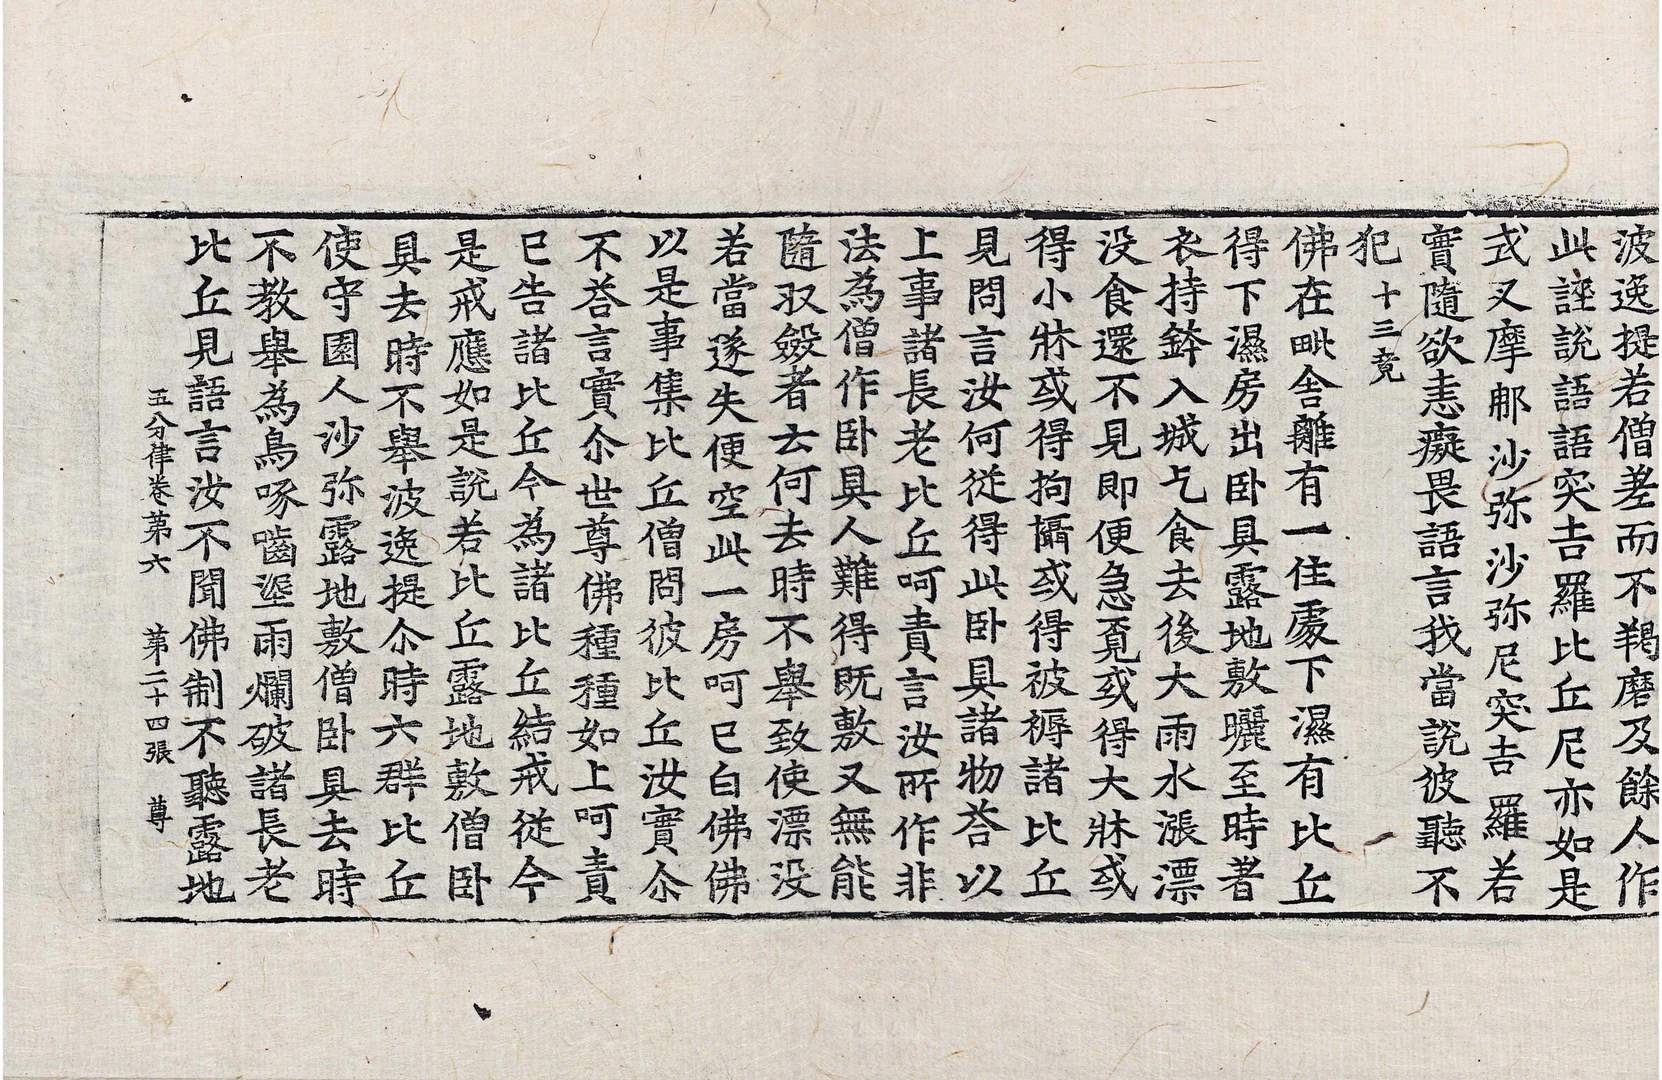 波逸提若僧差而不羯磨及餘人作
此誣說語語突吉羅比丘尼亦如是
式叉摩那沙弥沙弥尼突吉羅若
實隨欲恚癡畏語言我當說彼聽不
犯十三竟
佛在毗舍離有一住處下濕有比丘
得下濕房出卧具露地敷曬至時著
衣持鉢入城乞食去後大雨水漲漂
没食還不見即便急覓或得大牀或
得小牀或得拘攝或得被褥諸比丘
見問言汝何從得此卧具諸物荅以
上事諸長老比丘呵責言汝所作非
法為僧作卧具人難得既敷又無能
隨収斂者云何去時不舉致使漂没
若當遂失便空此一房呵已白佛佛
以是事集比丘僧問彼比丘汝實尒
不荅言實尒世尊佛種種如上呵責
已告諸比丘今為諸比丘結戒從今
是戒應如是說若比丘露地敷僧卧
具去時不舉波逸提尒時六群比丘
使守園人沙弥露地敷僧卧具去時
不教舉為鳥啄嚙㘸雨爛破諸長老
比丘見語言汝不聞佛制不聽露地
五分律卷第六 第二十四張 尊